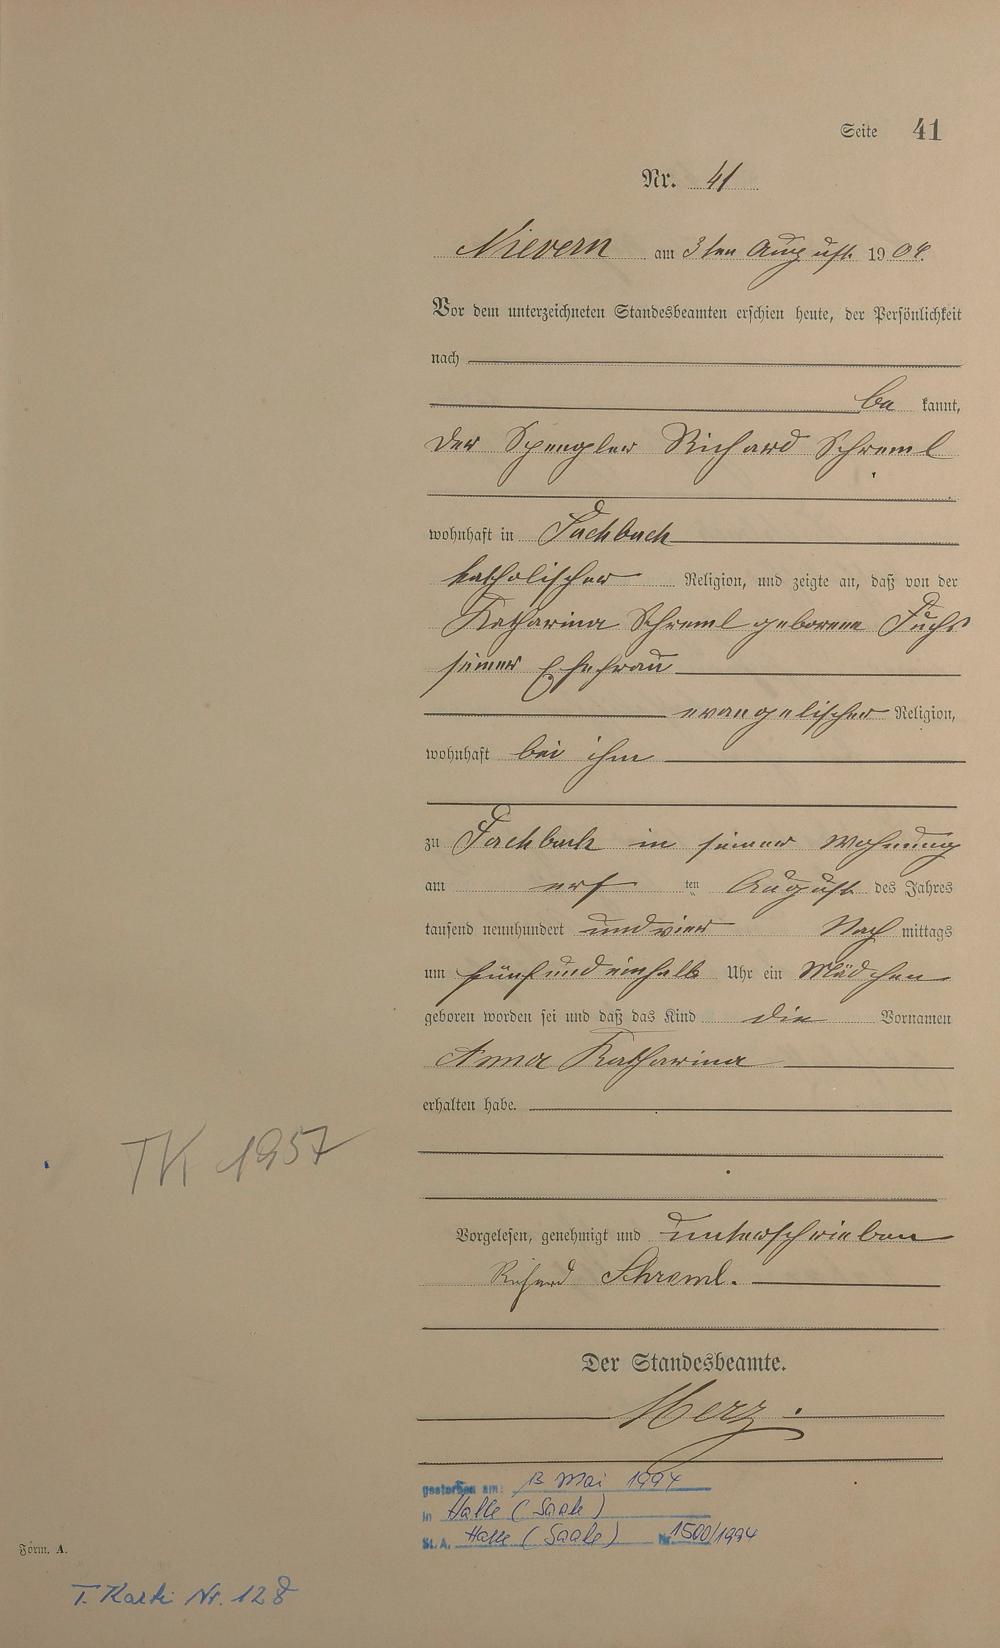 Seite 41
Nr. 41
Nievern am 3ten August 1904.
Vor dem unterzeichneten Standesbeamten erschien heute, der Persönlichkeit
nach
be kannt,
der Spengler Richard Schreml
wohnhaft in Fachbach
katholischer Religion, und zeigte an, daß von der
Katharina Schreml geborene Fuchs
seiner Ehefrau
evangelischer Religion,
wohnhaft bei ihm
zu Fachbach in seiner Wohnung
am ersten August des Jahres
tausend neunhundert und vier Nach mittags
um fünf und einhalb Uhr ein Mädchen
geboren worden sei und daß das Kind die Vornamen
Anna Katharina
erhalten habe.
TK 1957
Vorgelesen, genehmigt und unterschrieben
Richard Schreml.
Der Standesbeamte.
Merz.
gestorben am: 13 Mai 1994
in Halle (Saale)
St. A. Halle (Saale) Nr. 1500/1994
Form. A.
T. Karte Nr. 128